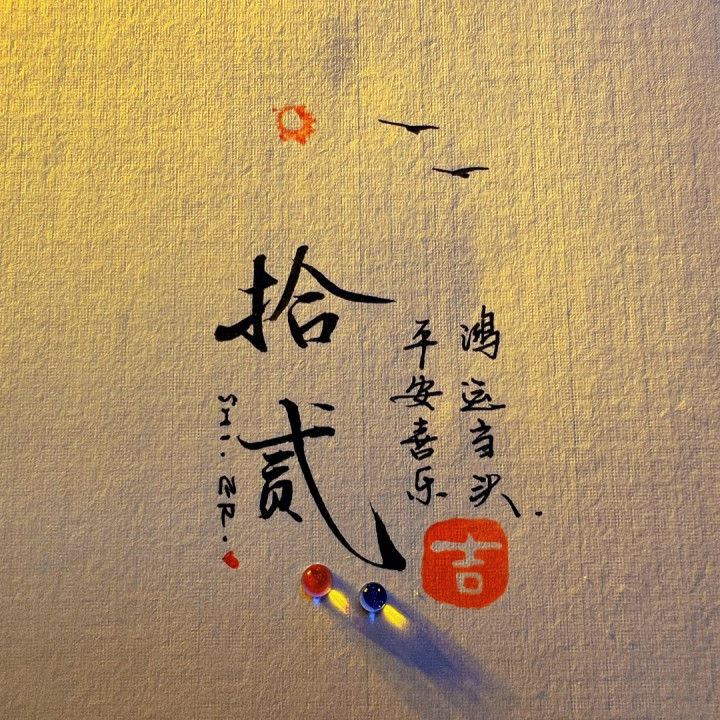 拾贰
SHI.ER.
鸿运当头.
平安喜乐
吉